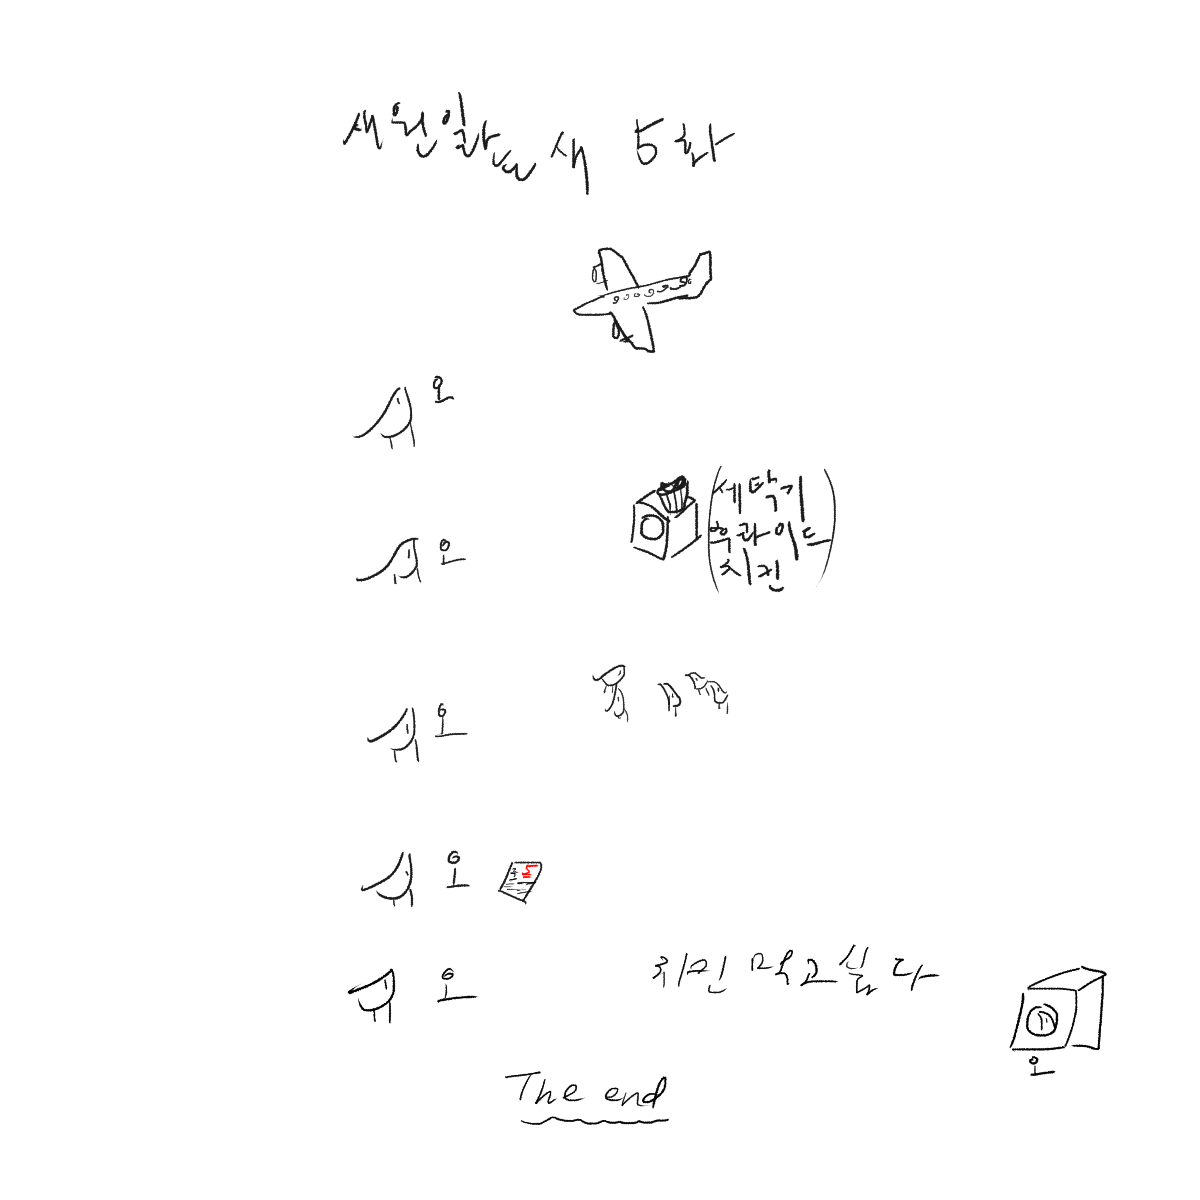 새원일랎새 5화
오
세탁기
오
후라이드
치킨
오
오
5
오
치킨 먹고싶다
오
The end